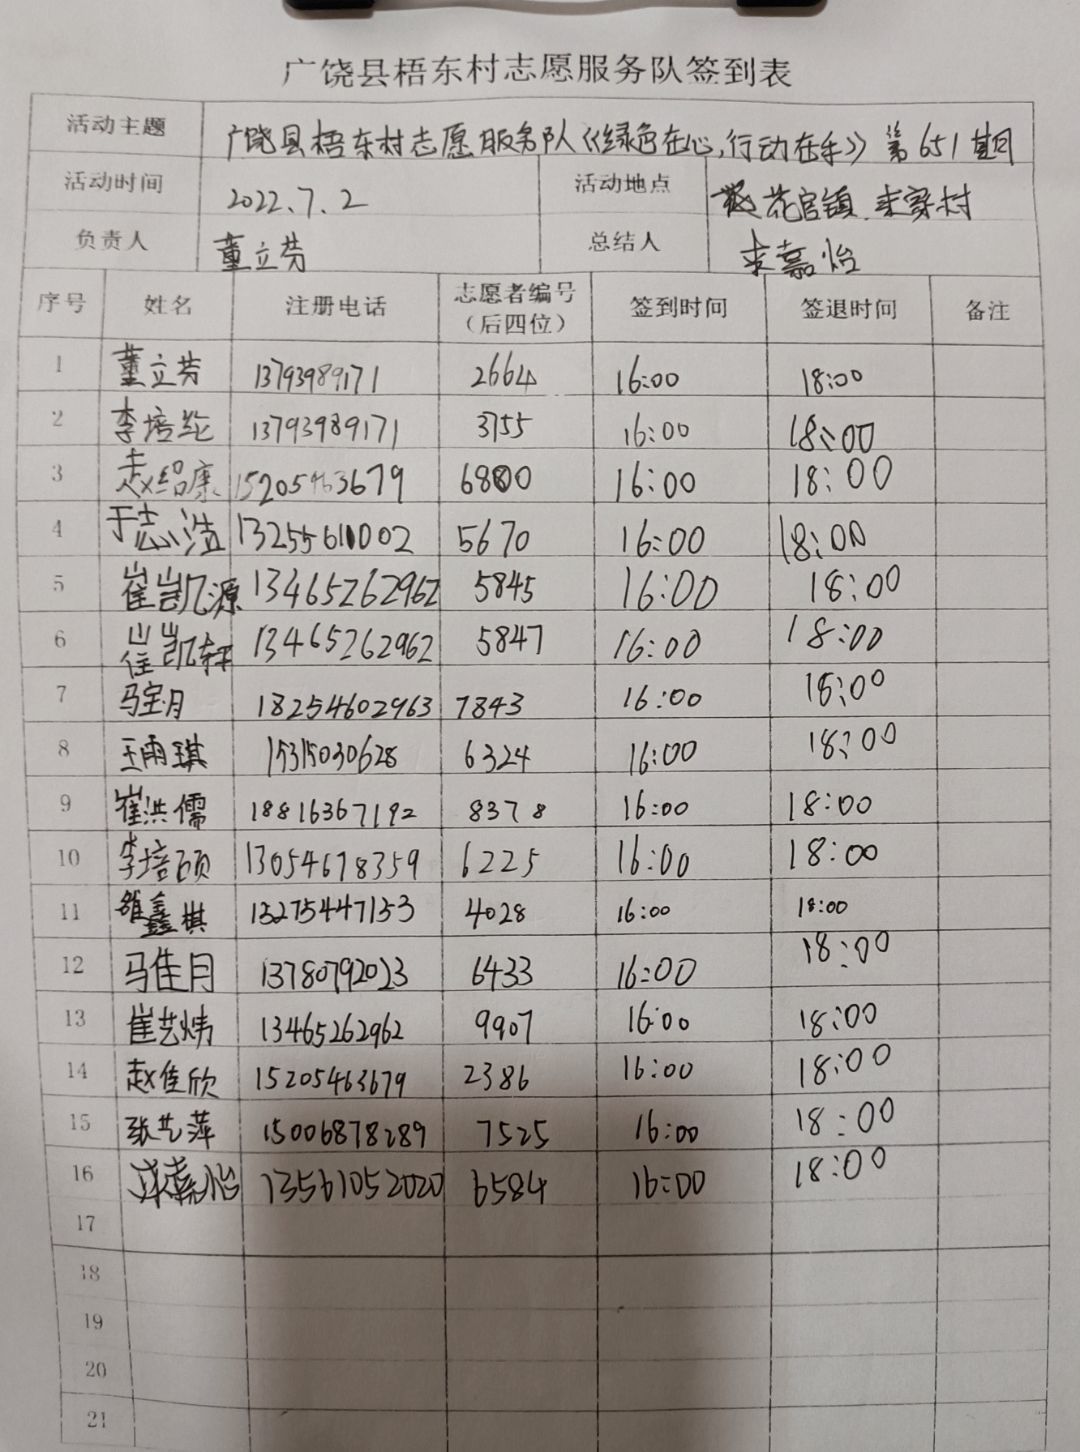 广饶县梧东村志愿服务队签到表
活动主题 广饶县梧东村志愿服务队《绿色在心,行动在手》第651期
活动时间 2022.7.2 活动地点 花官镇
负责人 董立芬 总结人 嘉怡
序号 姓名 注册电话 志愿者编号(后四位) 签到时间 签退时间 备注
1 董立芬 13793989171 2664 16:00 18:00
2 李培纶 13793989171 3755 16:00 18:00
3 赵绍康 15205463679 6800 16:00 18:00
4 于志浩 13255610002 5670 16:00 18:00
5 崔凯源 13465262962 5845 16:00 18:00
6 崔凯轩 13465262962 5847 16:00 18:00
7 马宝月 18254602963 7843 16:00 18:00
8 王雨琪 15315030628 6324 16:00 18:00
9 崔洪儒 18816367192 8378 16:00 18:00
10 李培硕 13054678359 6225 16:00 18:00
11 鑫棋 15275447153 4028 16:00 18:00
12 马佳月 13780792023 6433 16:00 18:00
13 崔艺炜 13465262962 9907 16:00 18:00
14 赵佳欣 15205463679 2386 16:00 18:00
15 张艺萍 15006878289 7525 16:00 18:00
16 嘉怡 13561052020 6584 16:00 18:00
17
18
19
20
21